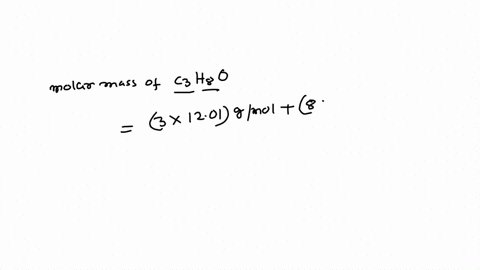 molar mass of C3H8O
= (3 × 12.01) g/mol + (8.